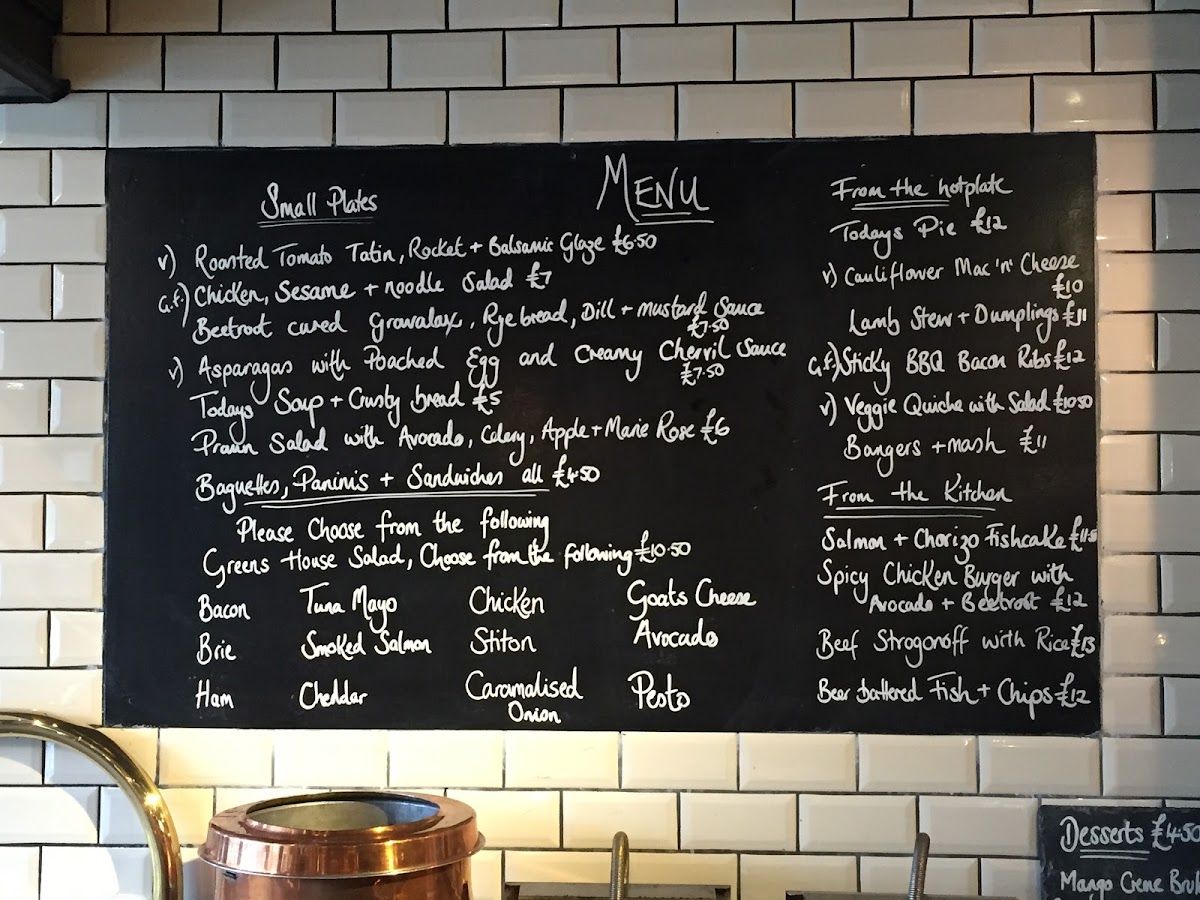 MENU
Small Plates
v) Roasted Tomato Tatin, Rocket + Balsamic Glaze £6.50
G.f.) Chicken, Sesame + noodle Salad £7
Beetroot cured Gravalax, Rye bread, Dill + mustard Sauce
£7.50
v) Asparagas with Poached Egg and Creamy Chervil Sauce
£7.50
Todays Soup + Crusty bread £5
Prawn Salad with Avocado, Celery, Apple + Marie Rose £6
Baguettes, Paninis + Sandwiches all £4.50
Please Choose from the following
Greens House Salad, Choose from the following £10.50
Bacon Tuna Mayo Chicken Goats Cheese
Brie Smoked Salmon Stilton Avocado
Ham Cheddar Caramalised Pesto
Onion
From the hotplate
Todays Pie £12
v) Cauliflower Mac 'n' Cheese
£10
Lamb Stew + Dumplings £11
G.f.) Sticky BBQ Bacon Ribs £12
v) Veggie Quiche with Salad £10.50
Bangers + mash £11
From the Kitchen
Salmon + Chorizo Fishcake £11.50
Spicy Chicken Burger with
Avocado + Beetroot £12
Beef Strogonoff with Rice £13
Beer battered Fish + Chips £12
Desserts £4.50
Mango Creme Brul